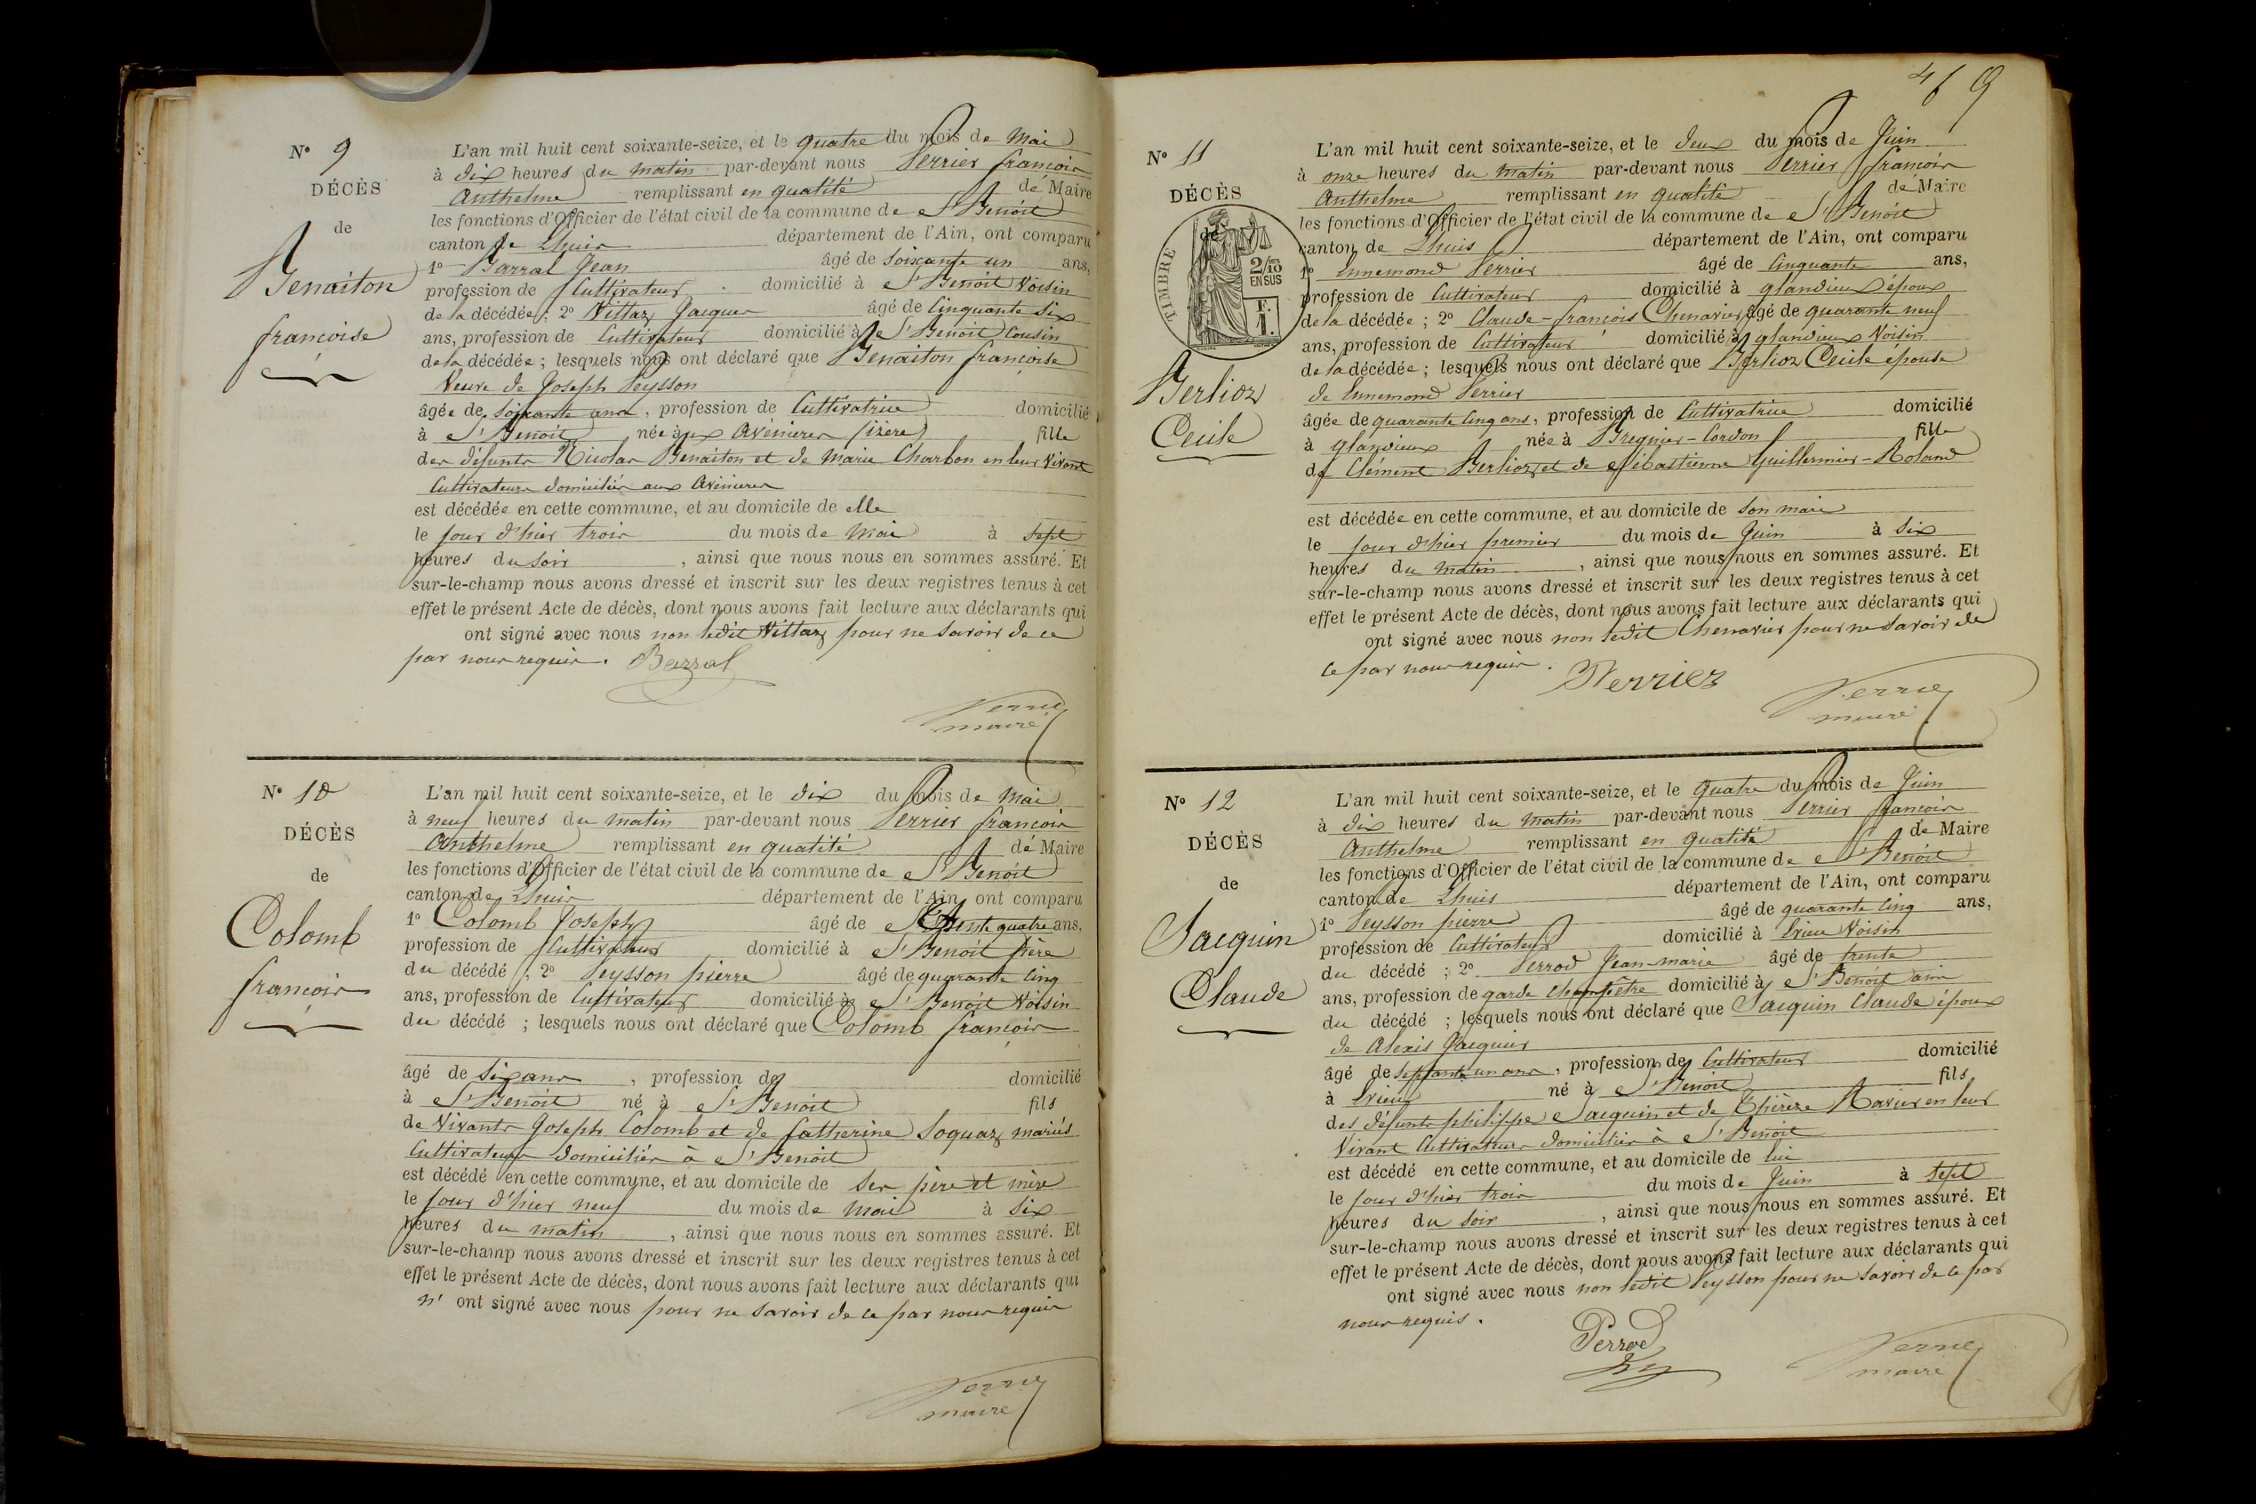 N° 9
DÉCÈS
de
Benaiton
françoise
L'an mil huit cent soixante-seize, et le quatre du mois de Mai
à dix heures du matin par-devant nous Perrier françois
Anthelme remplissant en qualité de Maire
les fonctions d'Officier de l'état civil de la commune de St Benoit
canton de Lhuis département de l'Ain, ont comparu
1° Barral Jean âgé de soixante un ans,
profession de Cultivateur domicilié à St Benoit Voisin
de la décédée ; 2° Vittaz Jacques âgé de Cinquante six
ans, profession de Cultivateur domicilié à St Benoit Cousin
de la décédée ; lesquels nous ont déclaré que Benaiton françoise
Veuve de Joseph Peysson
âgée de soixante ans, profession de Cultivatrice domicilié
à St Benoit née aux Avenieres (izère) fille
des défunts Nicolas Benaiton et de Marie Charbon en leur Vivant
Cultivateurs domiciliés aux Avenieres
est décédée en cette commune, et au domicile de elle
le jour d'hier trois du mois de Mai à sept
heures du soir, ainsi que nous nous en sommes assuré. Et
sur-le-champ nous avons dressé et inscrit sur les deux registres tenus à cet
effet le présent Acte de décès, dont nous avons fait lecture aux déclarants qui
ont signé avec nous non ledit Vittaz pour ne savoir de ce
par nous requis. Barral
Perrier
maire
N° 10
DÉCÈS
de
Colomb
françois
L'an mil huit cent soixante-seize, et le dix du mois de Mai
à neuf heures du matin par-devant nous Perrier françois
Anthelme remplissant en qualité de Maire
les fonctions d'Officier de l'état civil de la commune de St Benoit
canton de Lhuis département de l'Ain, ont comparu
1° Colomb Joseph âgé de trente quatre ans,
profession de Cultivateur domicilié à St Benoit père
du décédé ; 2° Peysson pierre âgé de quarante cinq
ans, profession de Cultivateur domicilié à St Benoit Voisin
du décédé ; lesquels nous ont déclaré que Colomb françois
âgé de six ans, profession de domicilié
à St Benoit né à St Benoit fils
de Vivants Joseph Colomb et de Catherine Soquaz mariés
Cultivateurs domiciliés à St Benoit
est décédé en cette commune, et au domicile de ses père et mère
le jour d'hier neuf du mois de Mai à six
heures du matin, ainsi que nous nous en sommes assuré. Et
sur-le-champ nous avons dressé et inscrit sur les deux registres tenus à cet
effet le présent Acte de décès, dont nous avons fait lecture aux déclarants qui
n' ont signé avec nous pour ne savoir de ce par nous requis
Perrier
maire
9
N° 11
DÉCÈS
de
TIMBRE
2/10
EN SUS
F.
1.
Berlioz
Cecile
L'an mil huit cent soixante-seize, et le deux du mois de Juin
à onze heures du matin par-devant nous Perrier françois
Anthelme remplissant en qualité de Maire
les fonctions d'Officier de l'état civil de la commune de St Benoit
canton de Lhuis département de l'Ain, ont comparu
1° Ennemond Perrier âgé de Cinquante ans,
profession de Cultivateur domicilié à glandieux époux
de la décédée ; 2° Claude-françois Chenavier âgé de quarante neuf
ans, profession de Cultivateur domicilié à glandieux Voisin
de la décédée ; lesquels nous ont déclaré que Berlioz Cecile épouse
de Ennemond Perrier
âgée de quarante cinq ans, profession de Cultivatrice domicilié
à glandieux née à Bregnier-Cordon fille
de Clément Berlioz et de Sébastienne Guillermier-Roland
est décédée en cette commune, et au domicile de son mari
le jour d'hier premier du mois de Juin à six
heures du matin, ainsi que nous nous en sommes assuré. Et
sur-le-champ nous avons dressé et inscrit sur les deux registres tenus à cet
effet le présent Acte de décès, dont nous avons fait lecture aux déclarants qui
ont signé avec nous non ledit Chenavier pour ne savoir de
ce par nous requis. Perrier
Perrier
maire
N° 12
DÉCÈS
de
Jacquin
Claude
L'an mil huit cent soixante-seize, et le quatre du mois de Juin
à dix heures du matin par-devant nous Perrier françois
Anthelme remplissant en qualité de Maire
les fonctions d'Officier de l'état civil de la commune de St Benoit
canton de Lhuis département de l'Ain, ont comparu
1° Peysson pierre âgé de quarante cinq ans,
profession de Cultivateur domicilié à Evieu Voisin
du décédé ; 2° Perrod Jean-marie âgé de trente
ans, profession de garde champêtre domicilié à St Benoit ami
du décédé ; lesquels nous ont déclaré que Jacquin Claude époux
de Alexis Jacquier
âgé de septante un ans, profession de Cultivateur domicilié
à Evieu né à St Benoit fils
des défunts philippe Jacquin et de Thérèze Ravier en leur
Vivant Cultivateurs domiciliés à St Benoit
est décédé en cette commune, et au domicile de lui
le jour d'hier trois du mois de Juin à sept
heures du soir, ainsi que nous nous en sommes assuré. Et
sur-le-champ nous avons dressé et inscrit sur les deux registres tenus à cet
effet le présent Acte de décès, dont nous avons fait lecture aux déclarants qui
ont signé avec nous non ledit Peysson pour ne savoir de ce par
nous requis.
Perrod
Perrier
maire